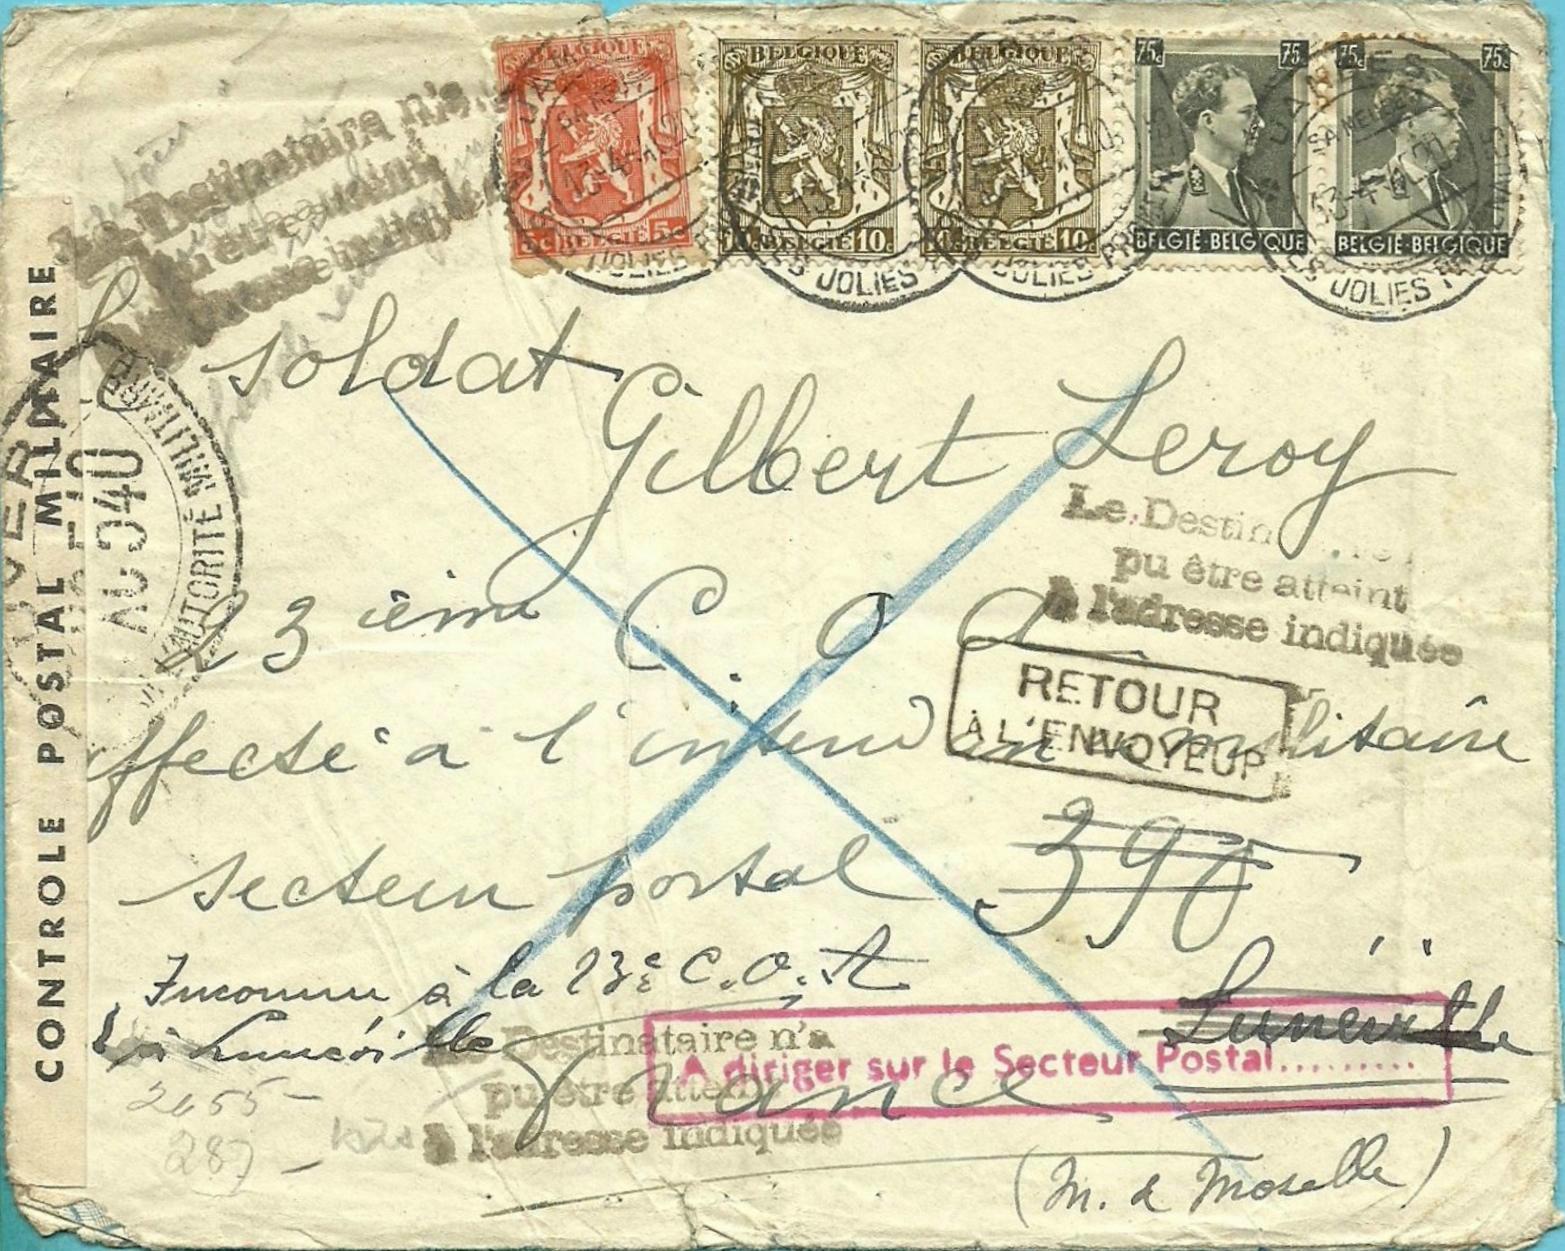 BELGIQUE
5c BELGIË 5c
BELGIQUE
BELGIË 10c
BELGIQUE
BELGIË 10c
75c 75
BELGIË-BELGIQUE
75c 75c
BELGIË-BELGIQUE
JOLIES
JOLIES
JOLIES
JOLIES
Le Destinataire n'a
pu être atteint
à l'adresse indiquée
soldat
Gilbert Leroy
23 ième C. O. A
affecté à l'intend militaire
secteur postal 390
Le Destinataire
pu être atteint
à l'adresse indiquée
RETOUR
À L'ENVOYEUR
Inconnu à la 23e C.O.A
à Lunéville
Lunéville
France
(M. & Moselle)
Le Destinataire n'a
pu être atteint
à l'adresse indiquée
A diriger sur le Secteur Postal.........
2655 -
287 -
CONTROLE POSTAL MILITAIRE
AUTORITÉ MILITAIRE